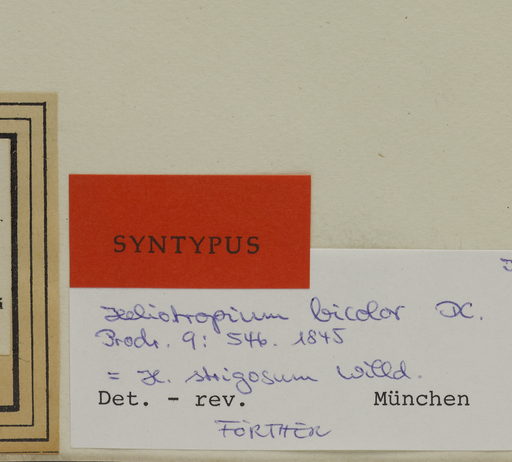 SYNTYPUS
Heliotropium bicolor DC.
Prodr. 9: 546. 1845
= H. strigosum Willd.
Det. - rev. München
FÖRTHER